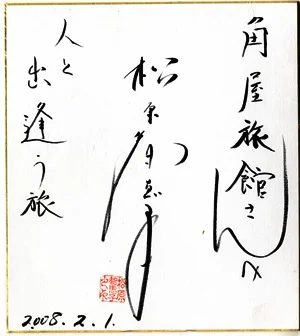 角屋旅館さんへ
松原智恵子
人と
出逢う旅
2008.2.1.